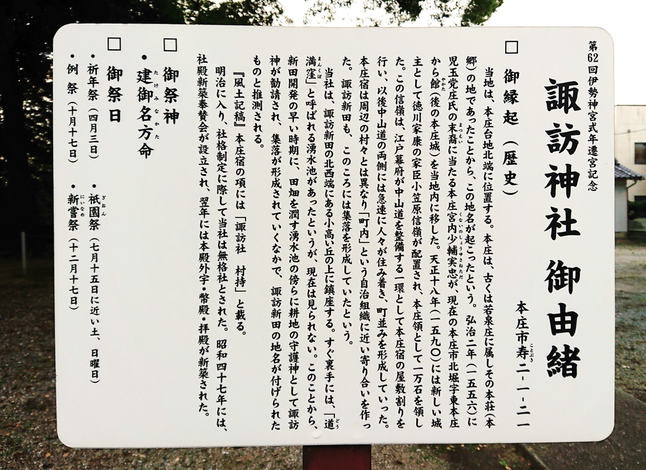 第62回伊勢神宮式年遷宮記念
諏訪神社 御由緒
本庄市寿二-一-二一
ことぶき
□ 御縁起(歴史)
当地は、本庄台地北端に位置する。本庄は、古くは若泉庄に属しその本荘(本
郷)の地であったことから、この地名が起こったという。弘治二年(一五五六)に
児玉党庄氏の末裔に当たる本庄宮内少輔実忠が、現在の本庄市北堀字東本庄
から館(後の本庄城)を当地内に移した。天正十八年(一五九〇)には新しい城
主として徳川家康の家臣小笠原信嶺が配置され、本庄領として一万石を領し
た。この信嶺は、江戸幕府が中山道を整備する一環として本庄宿の屋敷割りを
行い、以後中山道の両側には急速に人々が住み着き、町並みを形成していった。
本庄宿は周辺の村々とは異なり「町内」という自治組織に近い寄り合いを作っ
た。諏訪新田も、このころには集落を形成していたという。
当社は、諏訪新田の北西端にある小高い丘の上に鎮座する。すぐ裏手には、「道
満窪」と呼ばれる湧水池があったというが、現在は見られない。このことから、
新田開発の早い時期に、田畑を潤す湧水池の傍らに耕地の守護神として諏訪
神が勧請され、集落が形成されていくなかで、諏訪新田の地名が付けられた
ものと推測される。
『風土記稿』本庄宿の項には「諏訪社 村持」と載る。
明治に入り、社格制定に際して当社は無格社とされた。昭和四十七年には、
社殿新築奉賛会が設立され、翌年には本殿外宇・幣殿・拝殿が新築された。
□ 御祭神
・建御名方命
たけみなかた
□ 御祭日
・祈年祭(四月三日) ・祇園祭(七月十五日に近い土、日曜日)
ぎおん
・例祭(十月十七日) ・新嘗祭(十二月十七日)
にいなめ